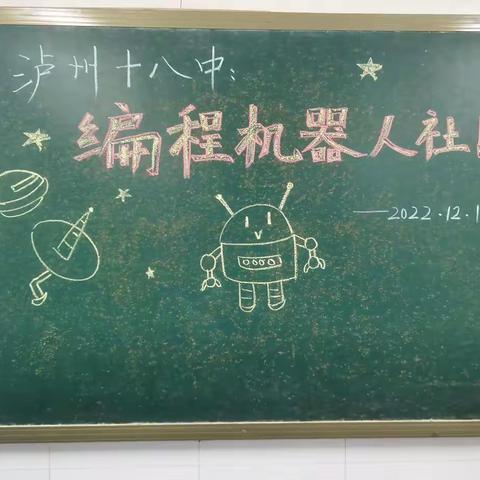 泸州十八中:
编程机器人社
——2022.12.1